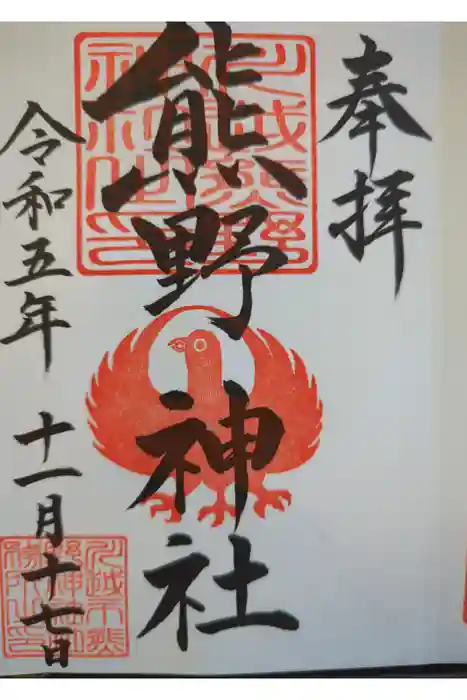 奉拝
熊野神社
令和五年 十一月十七日